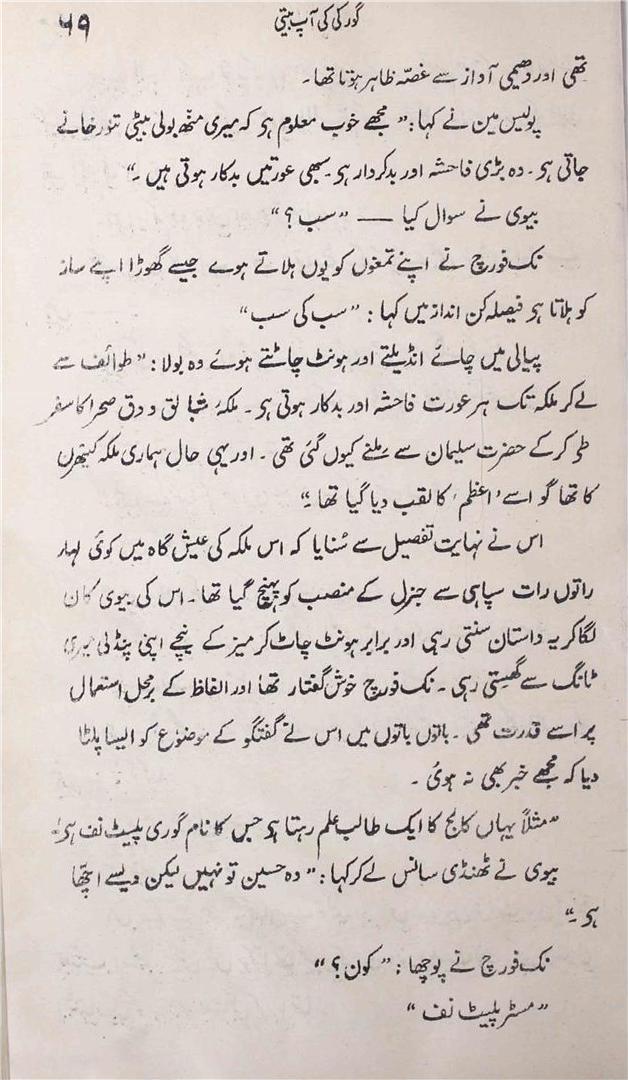 گورکی کی آپ بیتی
۵۹
تھی اور دھیمی آواز سے غصّہ ظاہر ہوتا تھا۔
پولیس مین نے کہا: ”مجھے خوب معلوم ہی کہ میری منھ بولی بیٹی تنور خانے
جاتی ہی۔ وہ بڑی فاحشہ اور بدکردار ہی۔ سبھی عورتیں بدکار ہوتی ہیں۔“
بیوی نے سوال کیا — ”سب؟“
نک فورچ نے اپنے تمغوں کو یوں ہلاتے ہوے جیسے گھوڑا اپنے ساز
کو ہلاتا ہی فیصلہ کن انداز میں کہا: ”سب کی سب“
پیالی میں چائے انڈیلتے اور ہونٹ چاٹتے ہوئے وہ بولا: ”طوائف سے
لے کر ملکہ تک ہر عورت فاحشہ اور بدکار ہوتی ہی۔ ملکۂ شبا لق و دق صحرا کا سفر
طی کرکے حضرت سلیمان سے ملنے کیوں گئی تھی۔ اور یہی حال ہماری ملکہ کیتھرن
کا تھا گو اسے ’اعظم‘ کا لقب دیا گیا تھا۔“
اس نے نہایت تفصیل سے سُنایا کہ اس ملکہ کی عیش گاہ میں کوئی لہار
راتوں رات سپاہی سے جنرل کے منصب کو پہنچ گیا تھا۔ اس کی بیوی کان
لگا کر یہ داستان سنتی رہی اور برابر ہونٹ چاٹ کر میز کے نیچے اپنی پنڈلی میری
ٹانگ سے گھِستی رہی۔ نک فورچ خوش گفتار تھا اور الفاظ کے برمحل استعمال
پر اسے قدرت تھی۔ باتوں باتوں میں اس نے گفتگو کے موضوع کو ایسا پلٹا
دیا کہ مجھے خبر بھی نہ ہوئی۔
”مثلاً یہاں کالج کا ایک طالب علم رہتا ہی جس کا نام گوری پلیٹ نف ہی“
بیوی نے ٹھنڈی سانس لے کر کہا: ”وہ حسین تو نہیں لیکن ویسے اچّھا
ہی۔“
نک فورچ نے پوچھا: ”کون؟“
”مسٹر پلیٹ نف“